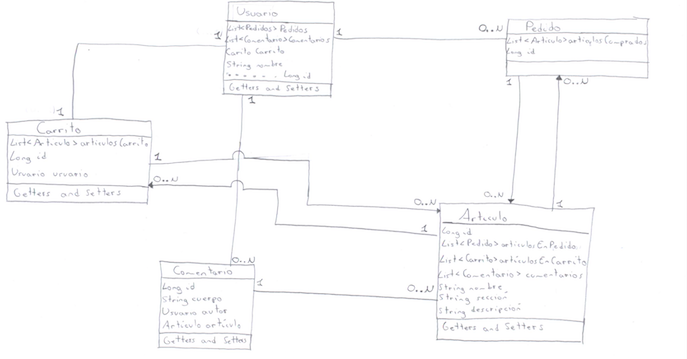 Usuario
List<Pedidos>Pedidos
List<Comentario>Comentarios
Carrito Carrito
String nombre
Long id
Getters and Setters
Pedido
List<Articulo>articulosComprados
Long id
1
1
0..N
1
1
1
0..N
Carrito
List<Articulo>articulosCarrito
Long id
Usuario usuario
Getters and Setters
1
0..N
0..N
1
0..N
1
Articulo
Long id
List<Pedido>articulosEnPedido
List<Carrito>articulosEnCarrito
List<Comentario> comentarios
String nombre
String sección
String descripción
Getters and Setters
0..N
Comentario
Long id
String cuerpo
Usuario autor
Articulo artículo
Getters and Setters
1
0..N